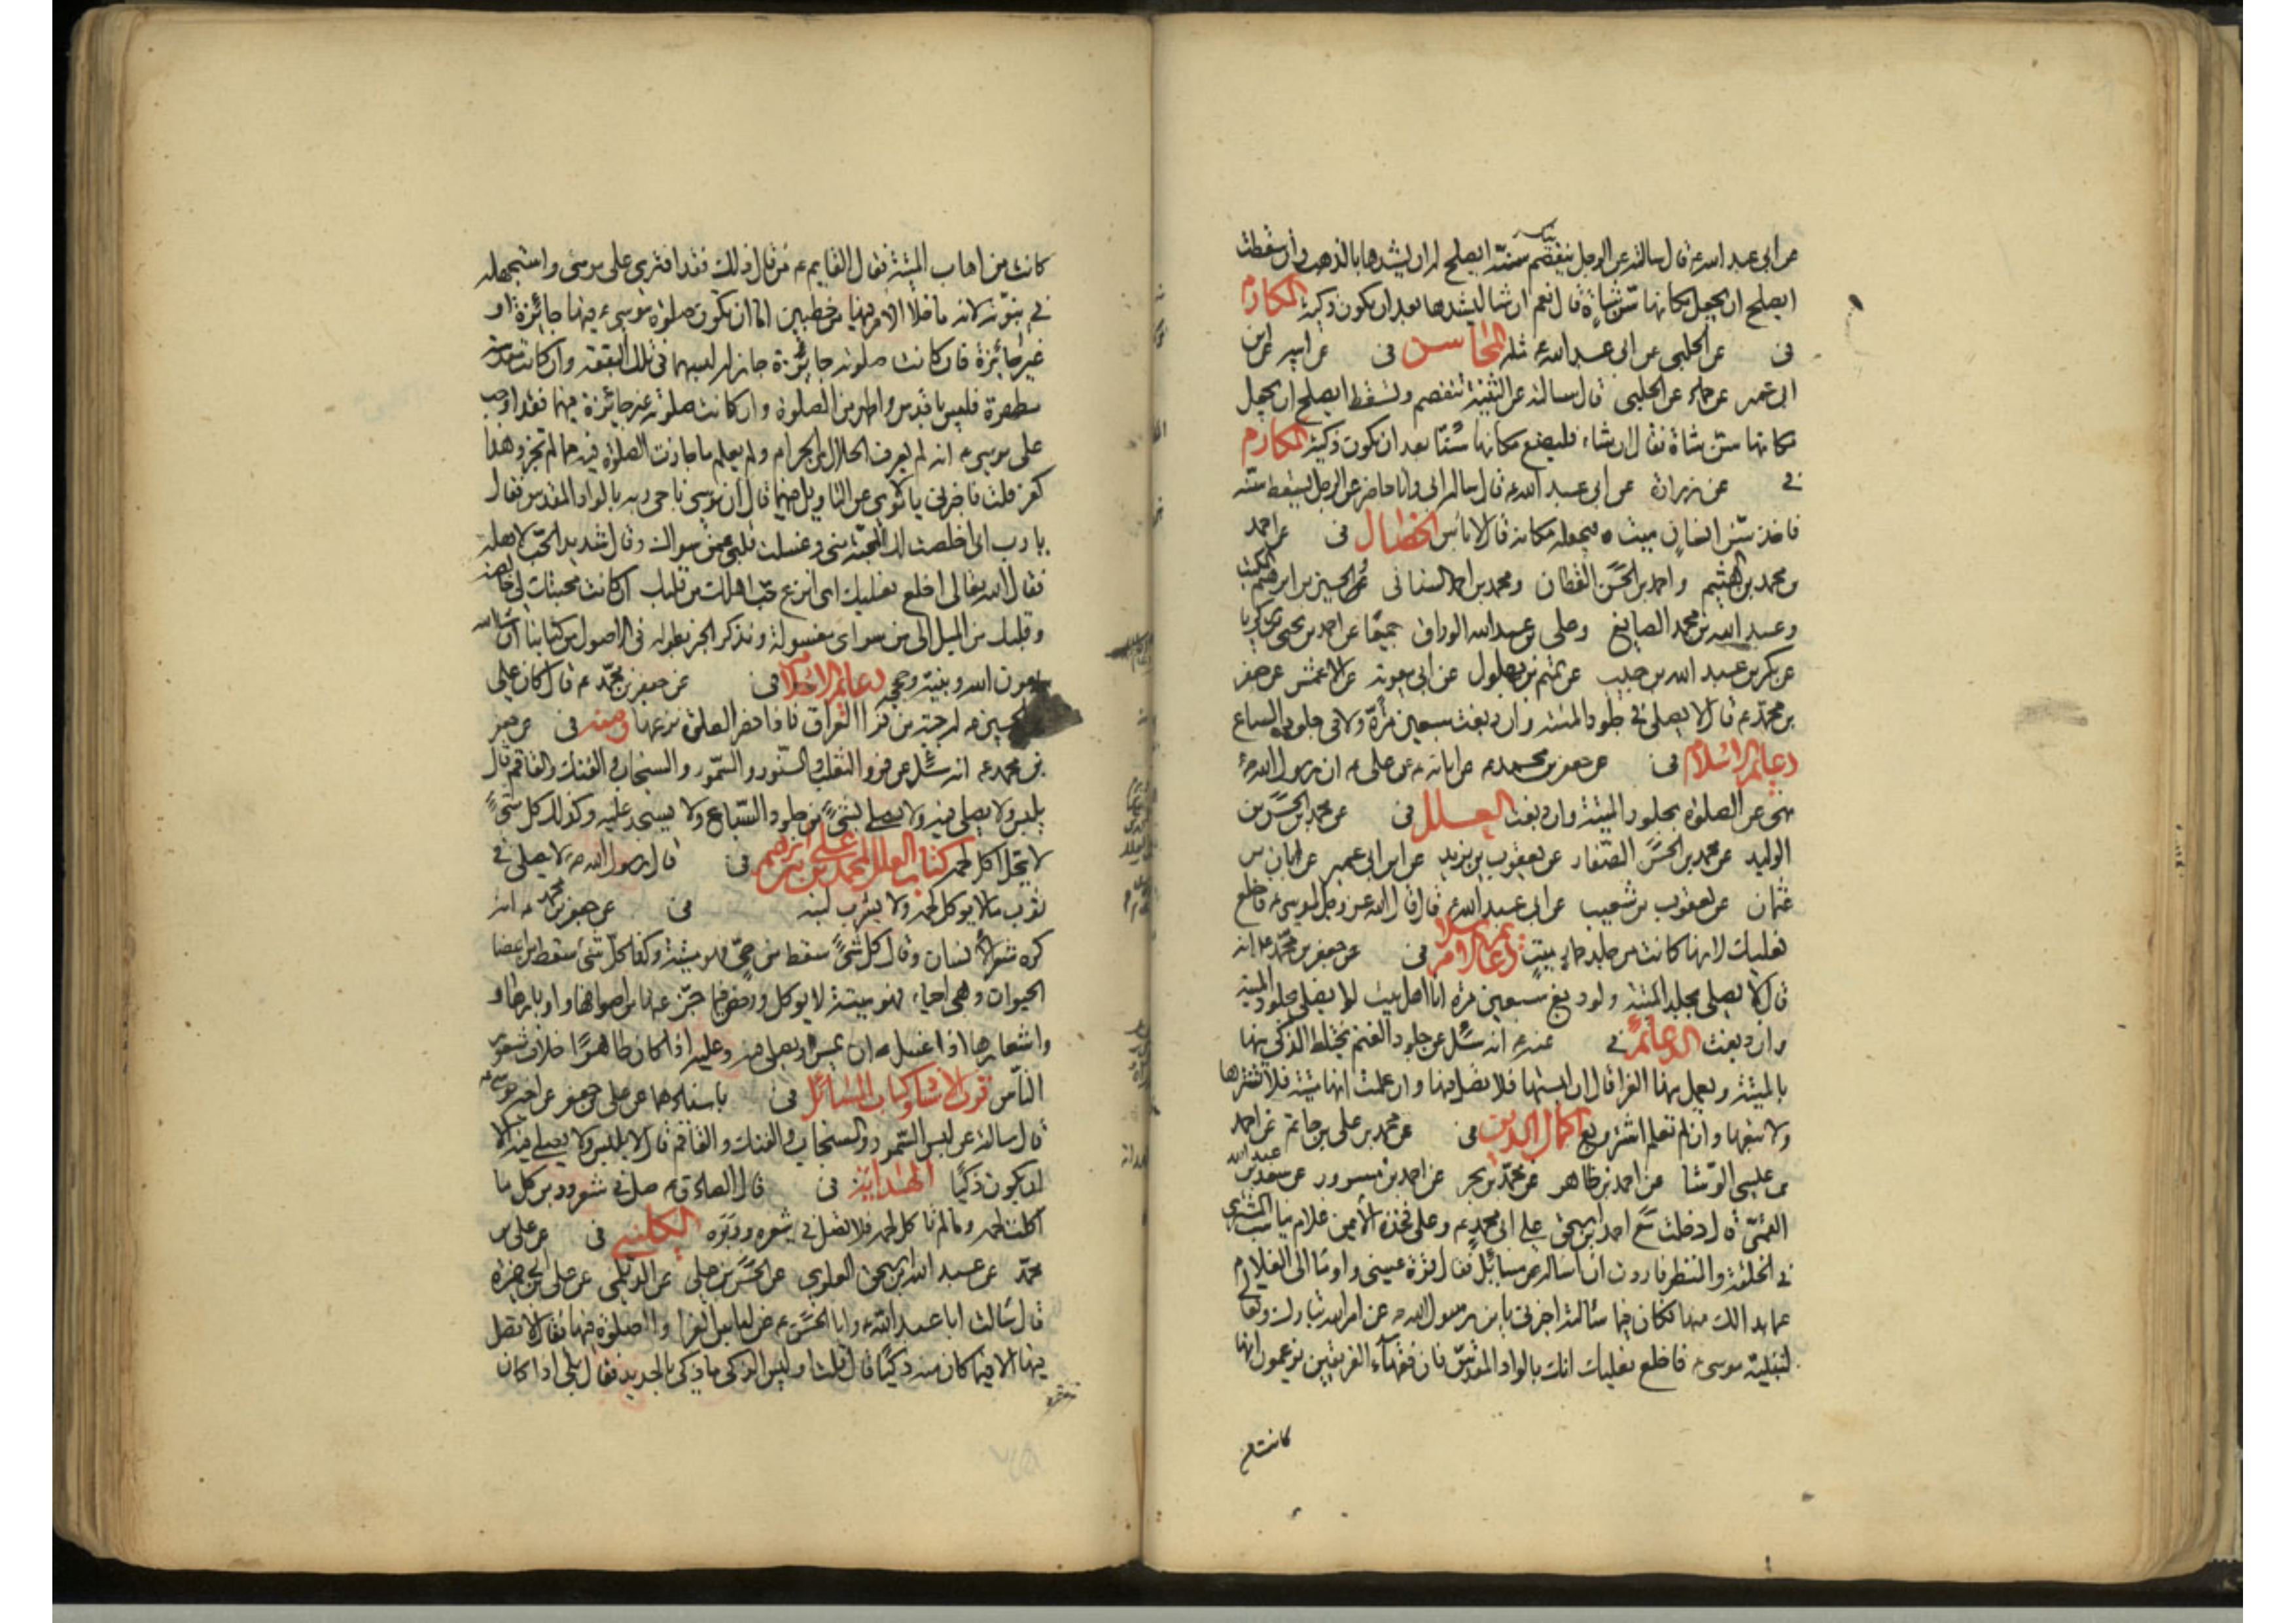 عن ابى عبد الله ع قال سالته عن الرجل ينفصم سنه ايصلح له ان يشدها بالذهب وان سقطت
ايصلح ان يجعل مكانها سن شاة قال نعم ان شا ليشدها بعد ان يكون ذكية المكارم
فى عن الحلبى عن ابى عبد الله ع مثله المحاسن فى عن ابيه عن ابن
ابى عمير عن حماد عن الحلبى قال سالته عن الثنية تنفصم وتسقط ايصلح ان يجعل
مكانها سن شاة فقال ان شاء فليضع مكانها سنا بعد ان تكون ذكية المكارم
فى عن زرارة عن ابى عبد الله ع قال ساله ابى وانا حاضر عن الرجل يسقط سنه
فاخذ سن انسان ميت فيجعله مكانه قال لا باس الخصال فى عن احمد
بن محمد بن الهيثم واحمد بن الحسن القطان ومحمد بن احمد السنانى والحسين بن ابرهيم المكتب
وعبد الله بن محمد الصايغ وعلى بن عبد الله الوراق جميعا عن احمد بن يحيى بن زكريا
عن بكر بن عبد الله بن حبيب عن تميم بن بهلول عن ابى معوية عن الاعمش عن جعفر
بن محمد ع قال لا يصلى فى جلود الميتة وان دبغت سبعين مرة ولا فى جلود السباع
دعائم الاسلام فى عن جعفر بن محمد ع عن ابائه ع عن على ع ان رسول الله ص
نهى عن الصلوة بجلود الميتة وان دبغت العلل فى عن محمد بن الحسن بن
الوليد عن محمد بن الحسن الصفار عن يعقوب بن يزيد عن ابن ابى عمير عن ابان بن
عثمان عن يعقوب بن شعيب عن ابى عبد الله ع قال قال الله عز وجل لموسى ع فاخلع
نعليك لانها كانت من جلد حمار ميت دعائم الاسلام فى عن جعفر بن محمد ع انه
قال لا يصلى بجلد الميتة ولو دبغ سبعين مرة انا اهل بيت لا يصلى بجلود الميتة
وان دبغت الدعائم فى عنه ع انه سئل عن جلود الغنم يختلط الذكى منها
بالميتة ويعمل منها الفرا قال ان لبستها فلا تصل فيها وان علمت انها ميتة فلا تشترها
ولا تبعها وان لم تعلم اشتر وبع اكمال الدين فى عن محمد بن على بن حاتم عن احمد
بن عيسى الوشا عن احمد بن طاهر عن محمد بن بحر عن احمد بن مسرور عن سعد بن عبد الله
القمى قال دخلت مع احمد بن اسحق على ابى محمد ع وعلى فخذه الايمن غلام يناسب المشترى
فى الخلقة والمنظر فاردت ان اساله عن مسائل فقال قرة عينى واومئا الى الغلام
عما بدا لك منها فكان فيما سالته اخبرنى يا بن رسول الله ص عن امر الله تبارك وتعالى
لنبيه موسى ع فاخلع نعليك انك بالواد المقدس فان فقهاء الفريقين يزعمون انها
كانت من
كانت من اهاب الميتة فقال القايم ع من قال ذلك فقد افترى على موسى واستجهله
فى نبوته لانه ما خلا الامر فيها من خطبين اما ان تكون صلوة موسى ع فيها جائزة او
غير جائزة فان كانت صلوته جائزة جاز له لبسهما فى تلك البقعة وان كانت مقدسة
مطهرة فليس باقدس واطهر من الصلوة وان كانت صلوته غير جائزة فيهما فقد اوجب
على موسى ع انه لم يعرف الحلال من الحرام ولم يعلم ما جازت الصلوة فيه مما لم تجز وهذا
كفر قلت فاخبرنى يا مولاى عن التاويل فيهما قال ان موسى ناجى ربه بالواد المقدس فقال
يا رب انى اخلصت لك المحبة منى وغسلت قلبى عمن سواك وكان شديد الحب لاهله
فقال الله تعالى اخلع نعليك اى انزع حب اهلك من قلبك ان كانت محبتك لى خالصة
وقلبك من الميل الى من سواى مغسولة ونذكر الخبر بطوله فى الاصول من كتابنا ان شاء الله
بعون الله وبنبيه وحججه دعائم الاسلام فى عن جعفر بن محمد ع قال كان على
بن الحسين ع له جبة من فرا العراق فاذا حضر الصلوة نزعها وعنه فى عن جعفر
بن محمد ع انه سئل عن فرو الثعلب والسنور والسمور والسنجاب والفنك والقاقم قال
يلبس ولا يصلى فيه ولا يصلى بشئ من جلود السباع ولا يسجد عليه وكذلك كل شئ
لا يحل اكل لحمه كتاب العلل لمحمد بن على بن ابرهيم فى قال رسول الله ص لا يصلى فى
ثوب ما لا يوكل لحمه ولا يشرب لبنه فى عن جعفر بن محمد ع انه
كره شعر الانسان وقال كل شئ سقط من حى فهو ميتة وكذا كل شئ سقط من اعضا
الحيوان وهى احياء فهو ميتة لا يوكل ورخص فيما جز عنها من اصوافها واوبارها و
واشعارها اذا غسل ان يمس ويصلى فيه وعليه اذا كان طاهرا خلاف شعور
الناس قرب الاسناد وكتاب المسائل فى باسنادهما عن على بن جعفر عن اخيه موسى ع
قال سالته عن لبس السمور والسنجاب والفنك والقاقم قال لا يلبس ولا يصلى فيه الا
ان يكون ذكيا الهداية فى قال الصادق ع صل فى شعر ووبر كل ما
اكلت لحمه وما لم تاكل لحمه فلا تصل فى شعره ووبره الكلينى فى عن على بن
محمد عن عبد الله بن اسحق العلوى عن الحسن بن على عن الديلمى عن على بن ابى حمزة
قال سالت ابا عبد الله ع وابا الحسن ع عن لباس الفرا والصلوة فيها فقال لا تصل
فيها الا فيما كان منه ذكيا قال قلت او ليس الذكى ما ذكى بالحديد فقال بلى اذا كان